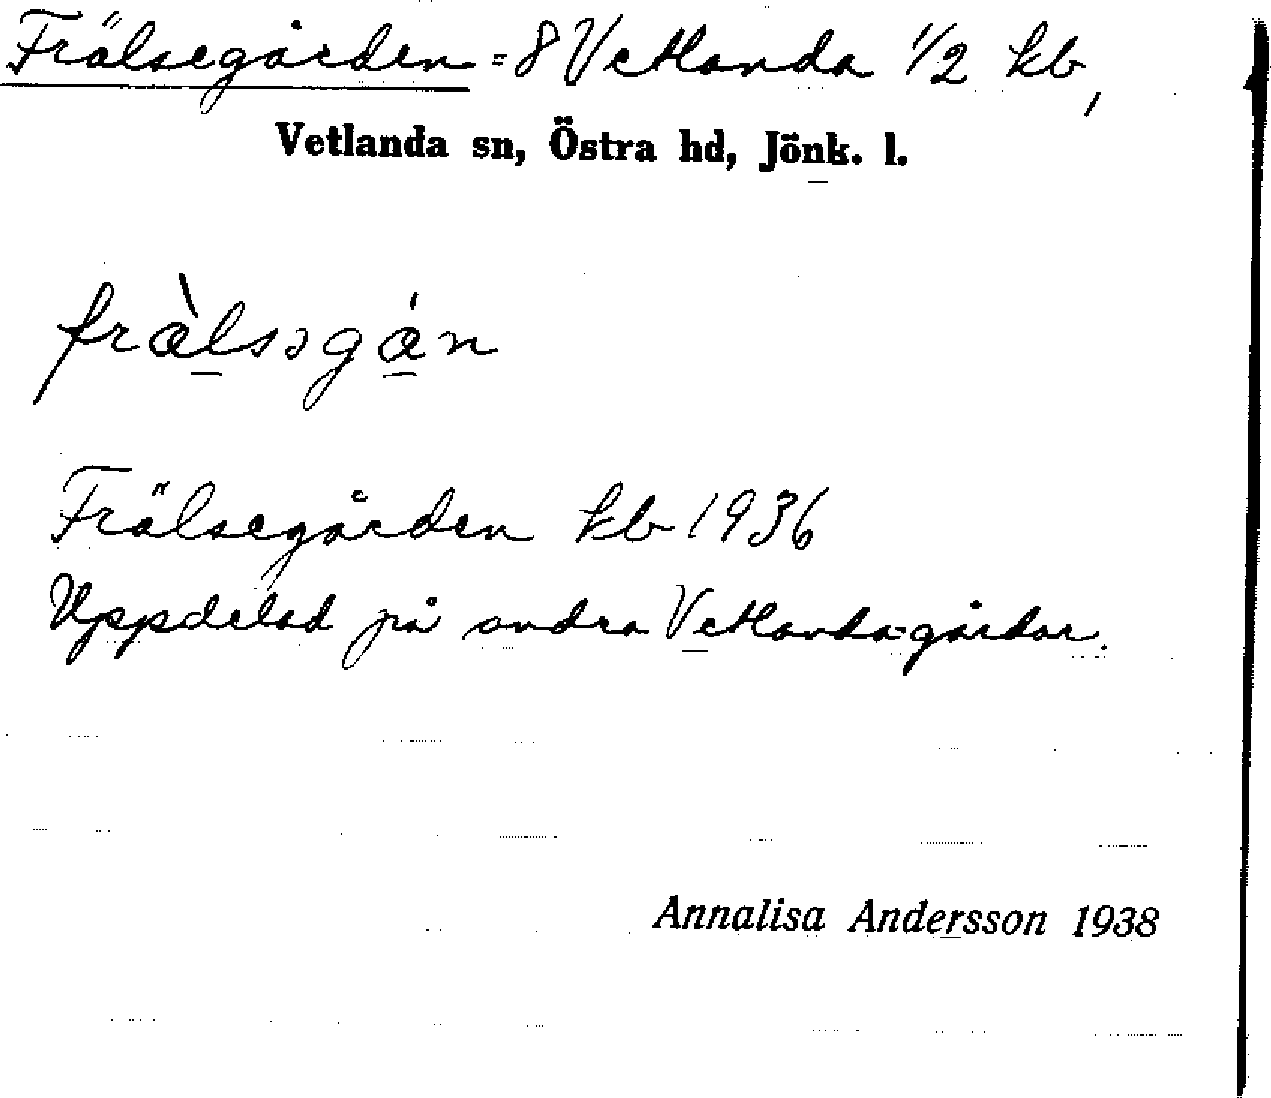 Frälsegården = 8 Vetlanda 1/2 kb,
Vetlanda sn, Östra hd, Jönk. l.
fræ̀lsəgán
Frälsegården kb 1936
Uppdelad på andra Vetlanda-gårdar.
Annalisa Andersson 1938